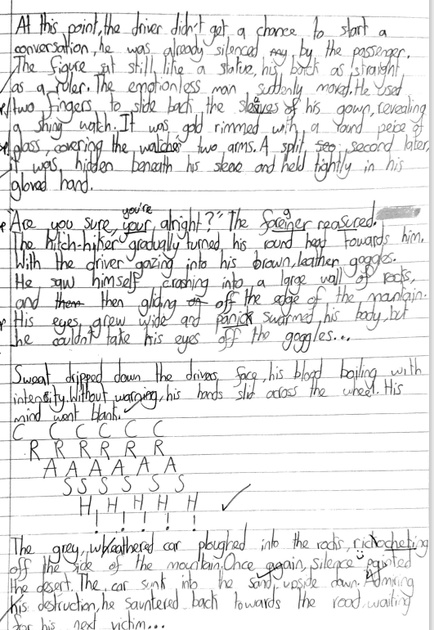 At this point, the driver didn't get a chance to start a
conversation, he was already silenced by the passenger.
The figure sat still, like a statue, his back as straight
as a ruler. The emotionless man suddenly moved. He used
two fingers to slide back the sleaves of his gown, revealing
a shiny watch. It was gold rimmed with a round peice of
glass, covering the watches two arms. A split second later,
it was hidden beneath his sleeve and held tightly in his
gloved hand.
you're
"Are you sure, your alright?" The foreiner reasured.
The hitch-hiker gradually turned his round head towards him.
With the driver gazing into his brown, leather goggles.
He saw himself crashing into a large wall of rocks,
and them then gliding off the edge of the mountain.
His eyes grew wide and panick swarmed his body, but
he couldn't take his eyes off the goggles...
Sweat dripped down the drivers face, his blood boiling with
intensity. Without warning, his hands slid across the wheel. His
mind went blank.
C C C C C C
R R R R R R
A A A A A A
S S S S S S
H H H H H
! ! ! ! !
The grey, weathered car ploughed into the rocks, richocheting
off the side of the mountain. Once again, silence painted
the desert. The car sunk into the sand, upside down. Admiring
his destruction, he sauntered back towards the road, waiting
for his next victim...